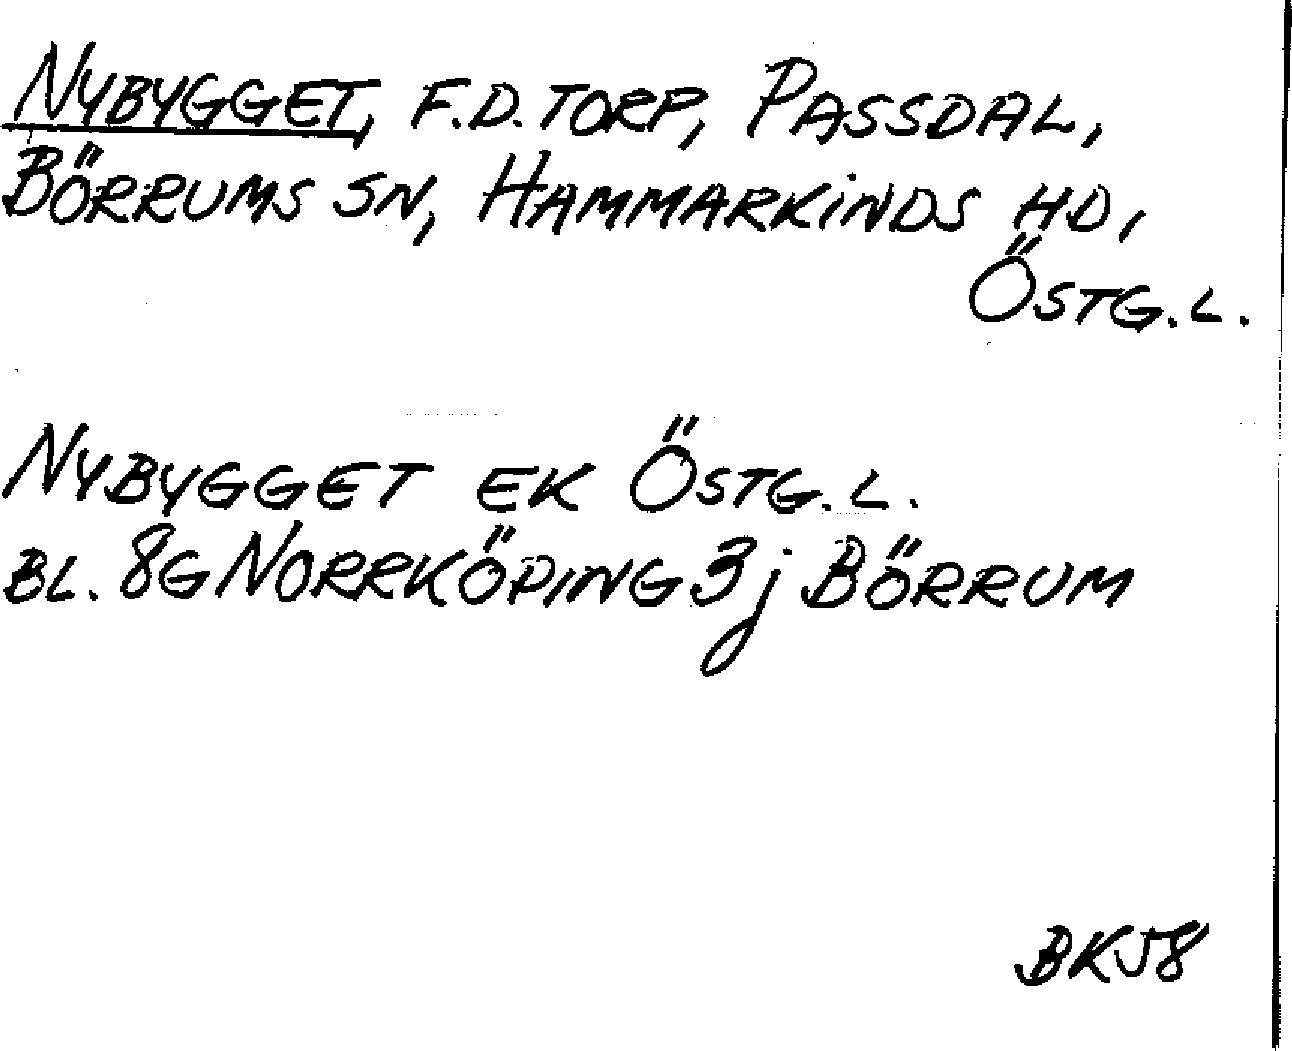 NYBYGGET, F.D. TORP, PASSDAL,
BÖRRUMS SN, HAMMARKINDS HD,
ÖSTG.L.
NYBYGGET EK ÖSTG.L.
BL. 8G NORRKÖPING 3j BÖRRUM
BK58